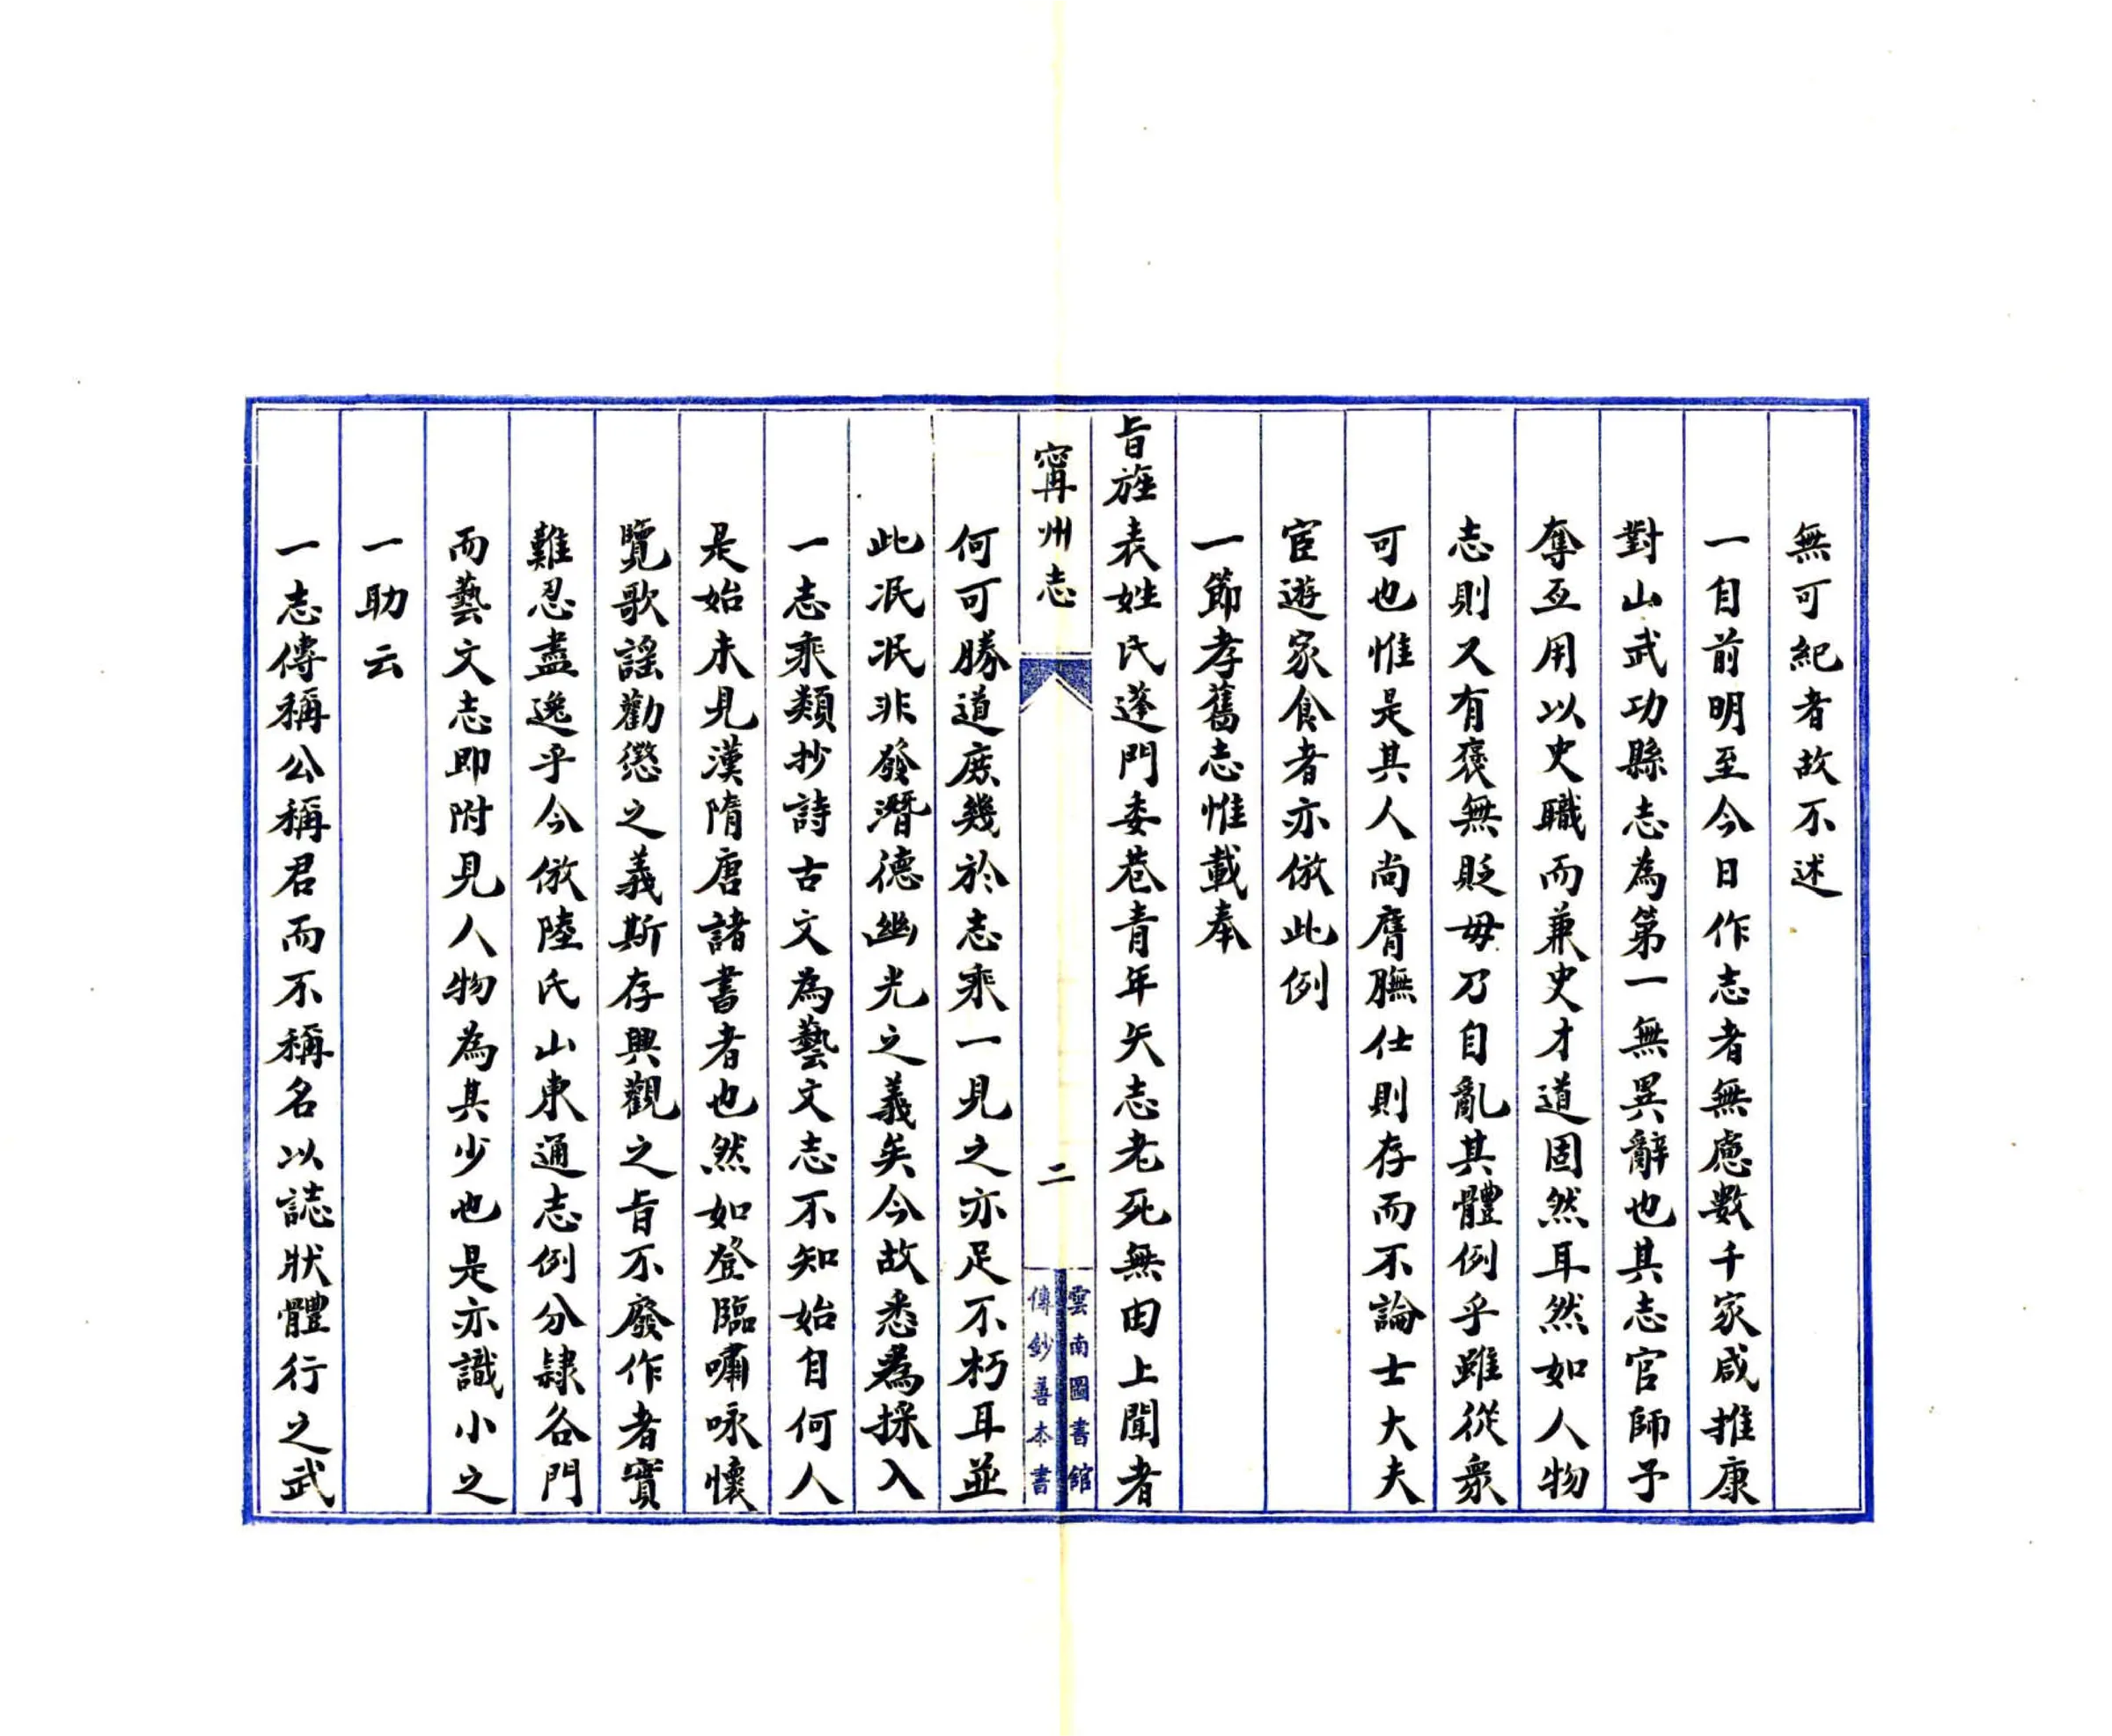 無可紀者故不述
一自前明至今日作志者無慮數千家咸推康
對山武功縣志為第一無異辭也其志官師予
奪互用以史職而兼史才道固然耳然如人物
志則又有褒無貶毋乃自亂其體例乎雖從衆
可也惟是其人尚膺膴仕則存而不論士大夫
宦遊家食者亦倣此例
一節孝舊志惟載奉
旨旌表姓氏蓬門委巷青年矢志老死無由上聞者
寗州志
二
雲南圖書館
傳鈔善本書
何可勝道庶幾於志乘一見之亦足不朽耳並
此泯泯非發潛德幽光之義矣今故悉為採入
一志乘類抄詩古文為藝文志不知始自何人
是始未見漢隋唐諸書者也然如登臨嘯咏懷
覽歌謡勸懲之義斯存興觀之旨不廢作者實
難忍盡逸乎今倣陸氏山東通志例分隷各門
而藝文志即附見人物為其少也是亦識小之
一助云
一志傳稱公稱君而不稱名以誌狀體行之武